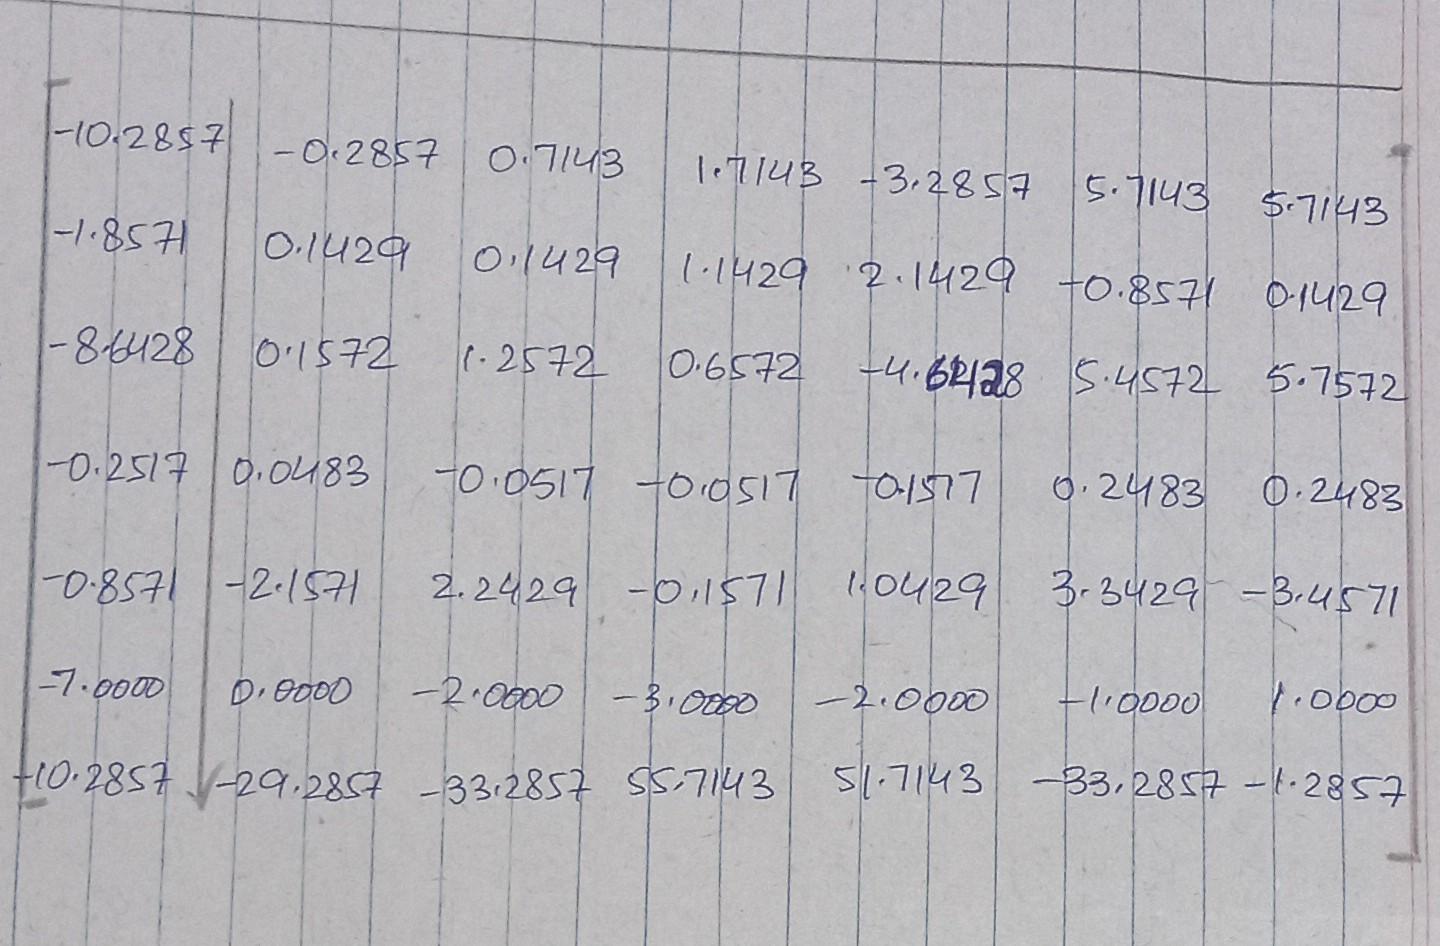 -10.2857 -0.2857 0.7143 1.7143 -3.2857 5.7143 5.7143
-1.8571 0.1429 0.1429 1.1429 2.1429 -0.8571 0.1429
-8.6428 0.1572 1.2572 0.6572 -4.6428 5.4572 5.7572
-0.2517 0.0483 -0.0517 -0.0517 -0.1517 0.2483 0.2483
-0.8571 -2.1571 2.2429 -0.1571 1.0429 3.3429 -3.4571
-7.0000 0.0000 -2.0000 -3.0000 -2.0000 -1.0000 1.0000
-10.2857 -29.2857 -33.2857 55.7143 51.7143 -33.2857 -1.2857